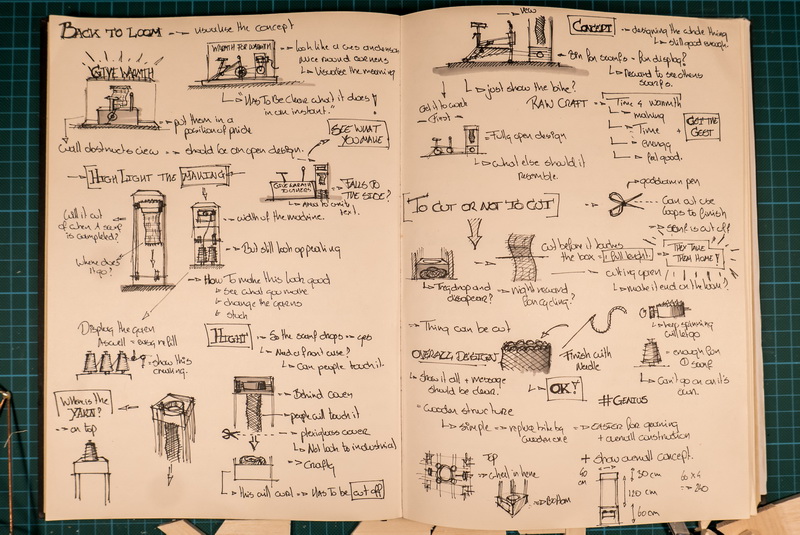 BACK TO LOOM --> visualise the concept
GIVE WARMTH
WARMTH FOR WARMTH
Visualise the meaning
"Has To Be Clear what it does
in an instant."
put them in a
position of pride
SEE WHAT
YOU MAKE
wall obstructs view --> should be an open design.
HIGHLIGHT THE MAKING
GIVE WARMTH
TO OTHERS
FALLS TO
THE SIDE?
text.
Will it cut
off when a scarf
is completed?
Where does
it go?
width of the machine.
But still look appealing
How To make this look good
see what you make
change the yarns
Display the yarn
As well = easy refill
show this
HEIGHT
So the scarf drops
Need a front case?
Can people touch it.
WHERE IS THE
YARN?
on top
Behind cover
people will touch it
plexiglass cover
Not look to industrial
Crafty
this will curl --> Has To be cut off
VIEW
CONCEPT --> designing the whole thing
still good enough.
Bin for scarfs - for display?
Reward to see others
scarfs.
just show the bike?
Get it to work
first
RAW CRAFT
Time & warmth
making
Time
energy
feel good.
GET THE
GEST
Fully open design
what else should it
resemble.
TO CUT OR NOT TO CUT
goddamn pen
Can cut use
loops to finish
scarf is cut off
THEY TAKE
THEM HOME!
Cut before it touches
the box = full length
cutting open
make it end on the loom?
They drop and
disappear?
might reward
for cycling?
Thing can be cut
Finish with
Needle
keep spinning
will let go
enough for
1 scarf
Can't go on on it's
own.
OVERALL DESIGN
Show it all + message
should be clear.
OK!
#GENIUS
wooden structure
simple --> replace bike by
wooden one
easier for gearing
+ overall construction
+ show overall concept.
TOP
wheel in here
Bottom
40
cm
30 cm
120 cm
60 cm
60 x 4
= 240